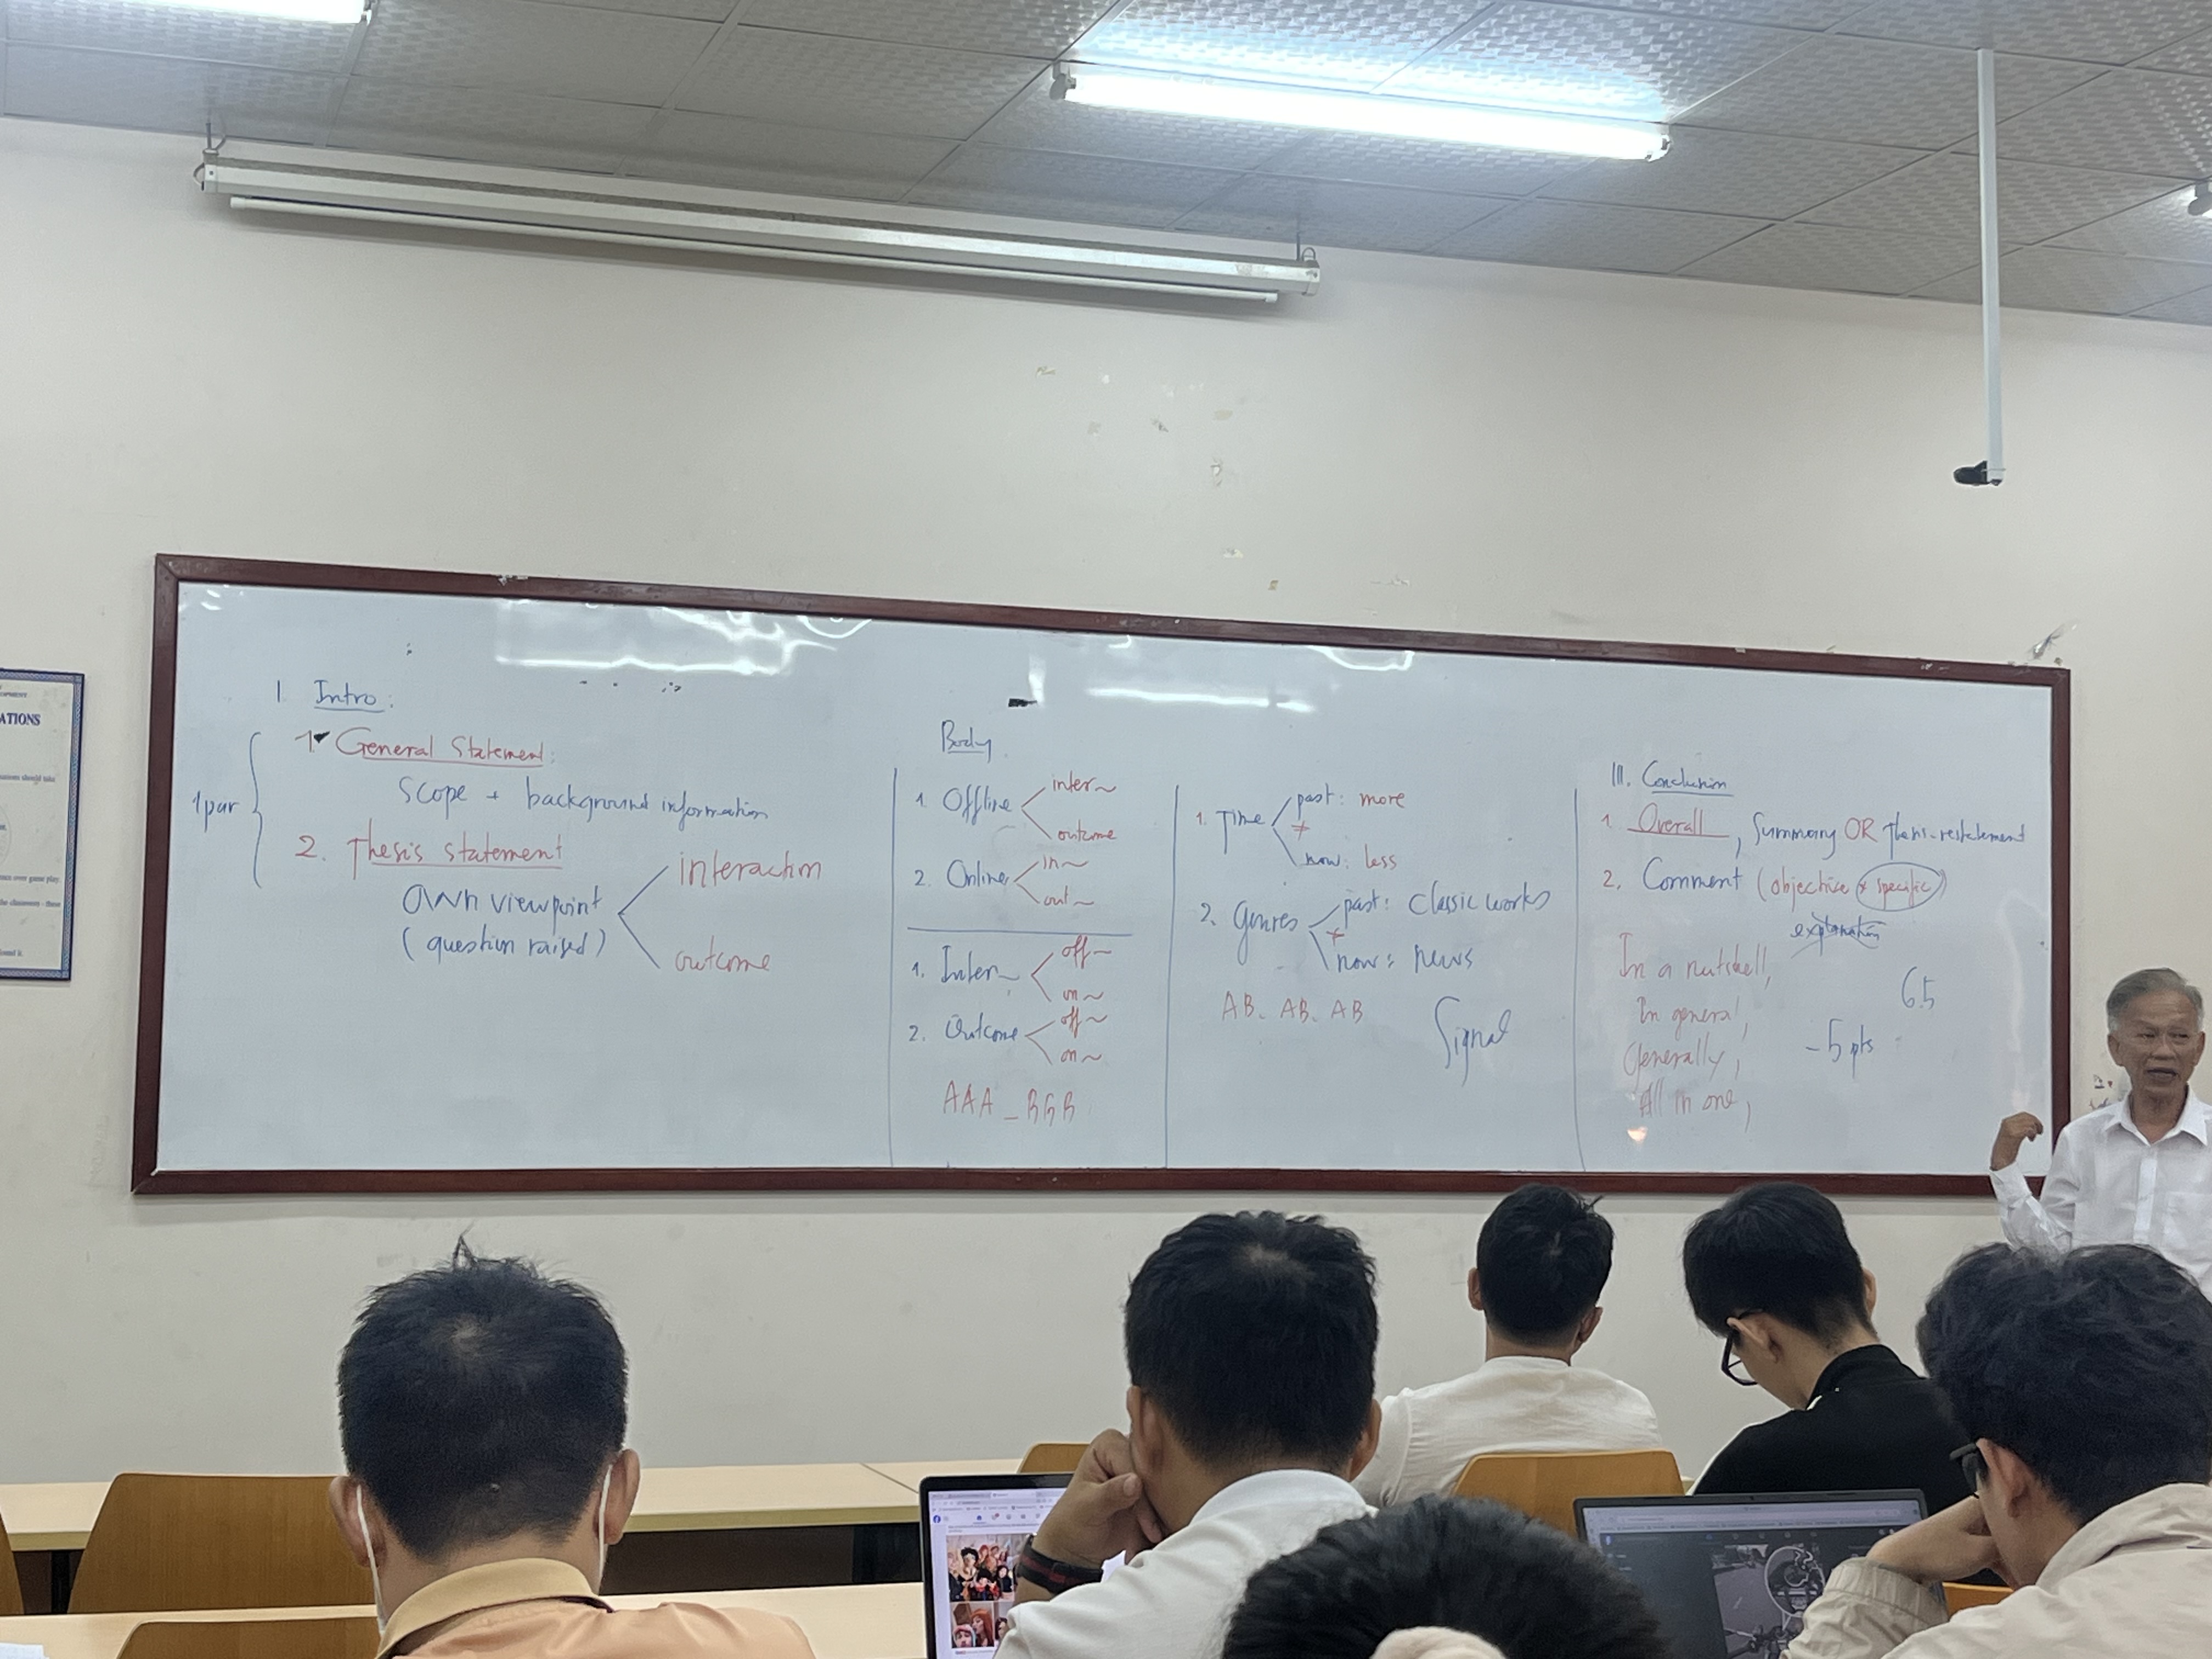 I. Intro:
1. General Statement:
scope + background information
1par
2. Thesis statement
own viewpoint
(question raised)
interaction
outcome
Body
1. Offline
inter~
outcome
2. Online
in~
out~
1. Inter~
off~
on~
2. Outcome
off~
on~
AAA_BBB
1. Time
past: more
≠
now: less
2. Genres
past: classic works
≠
now: news
AB. AB. AB
Signal
III. Conclusion
1. Overall, Summary OR Thesis-restatement
2. Comment (objective & specific)
explanation
In a nutshell,
In general,
Generally,
All in one,
6.5
-5 pts
ATIONS